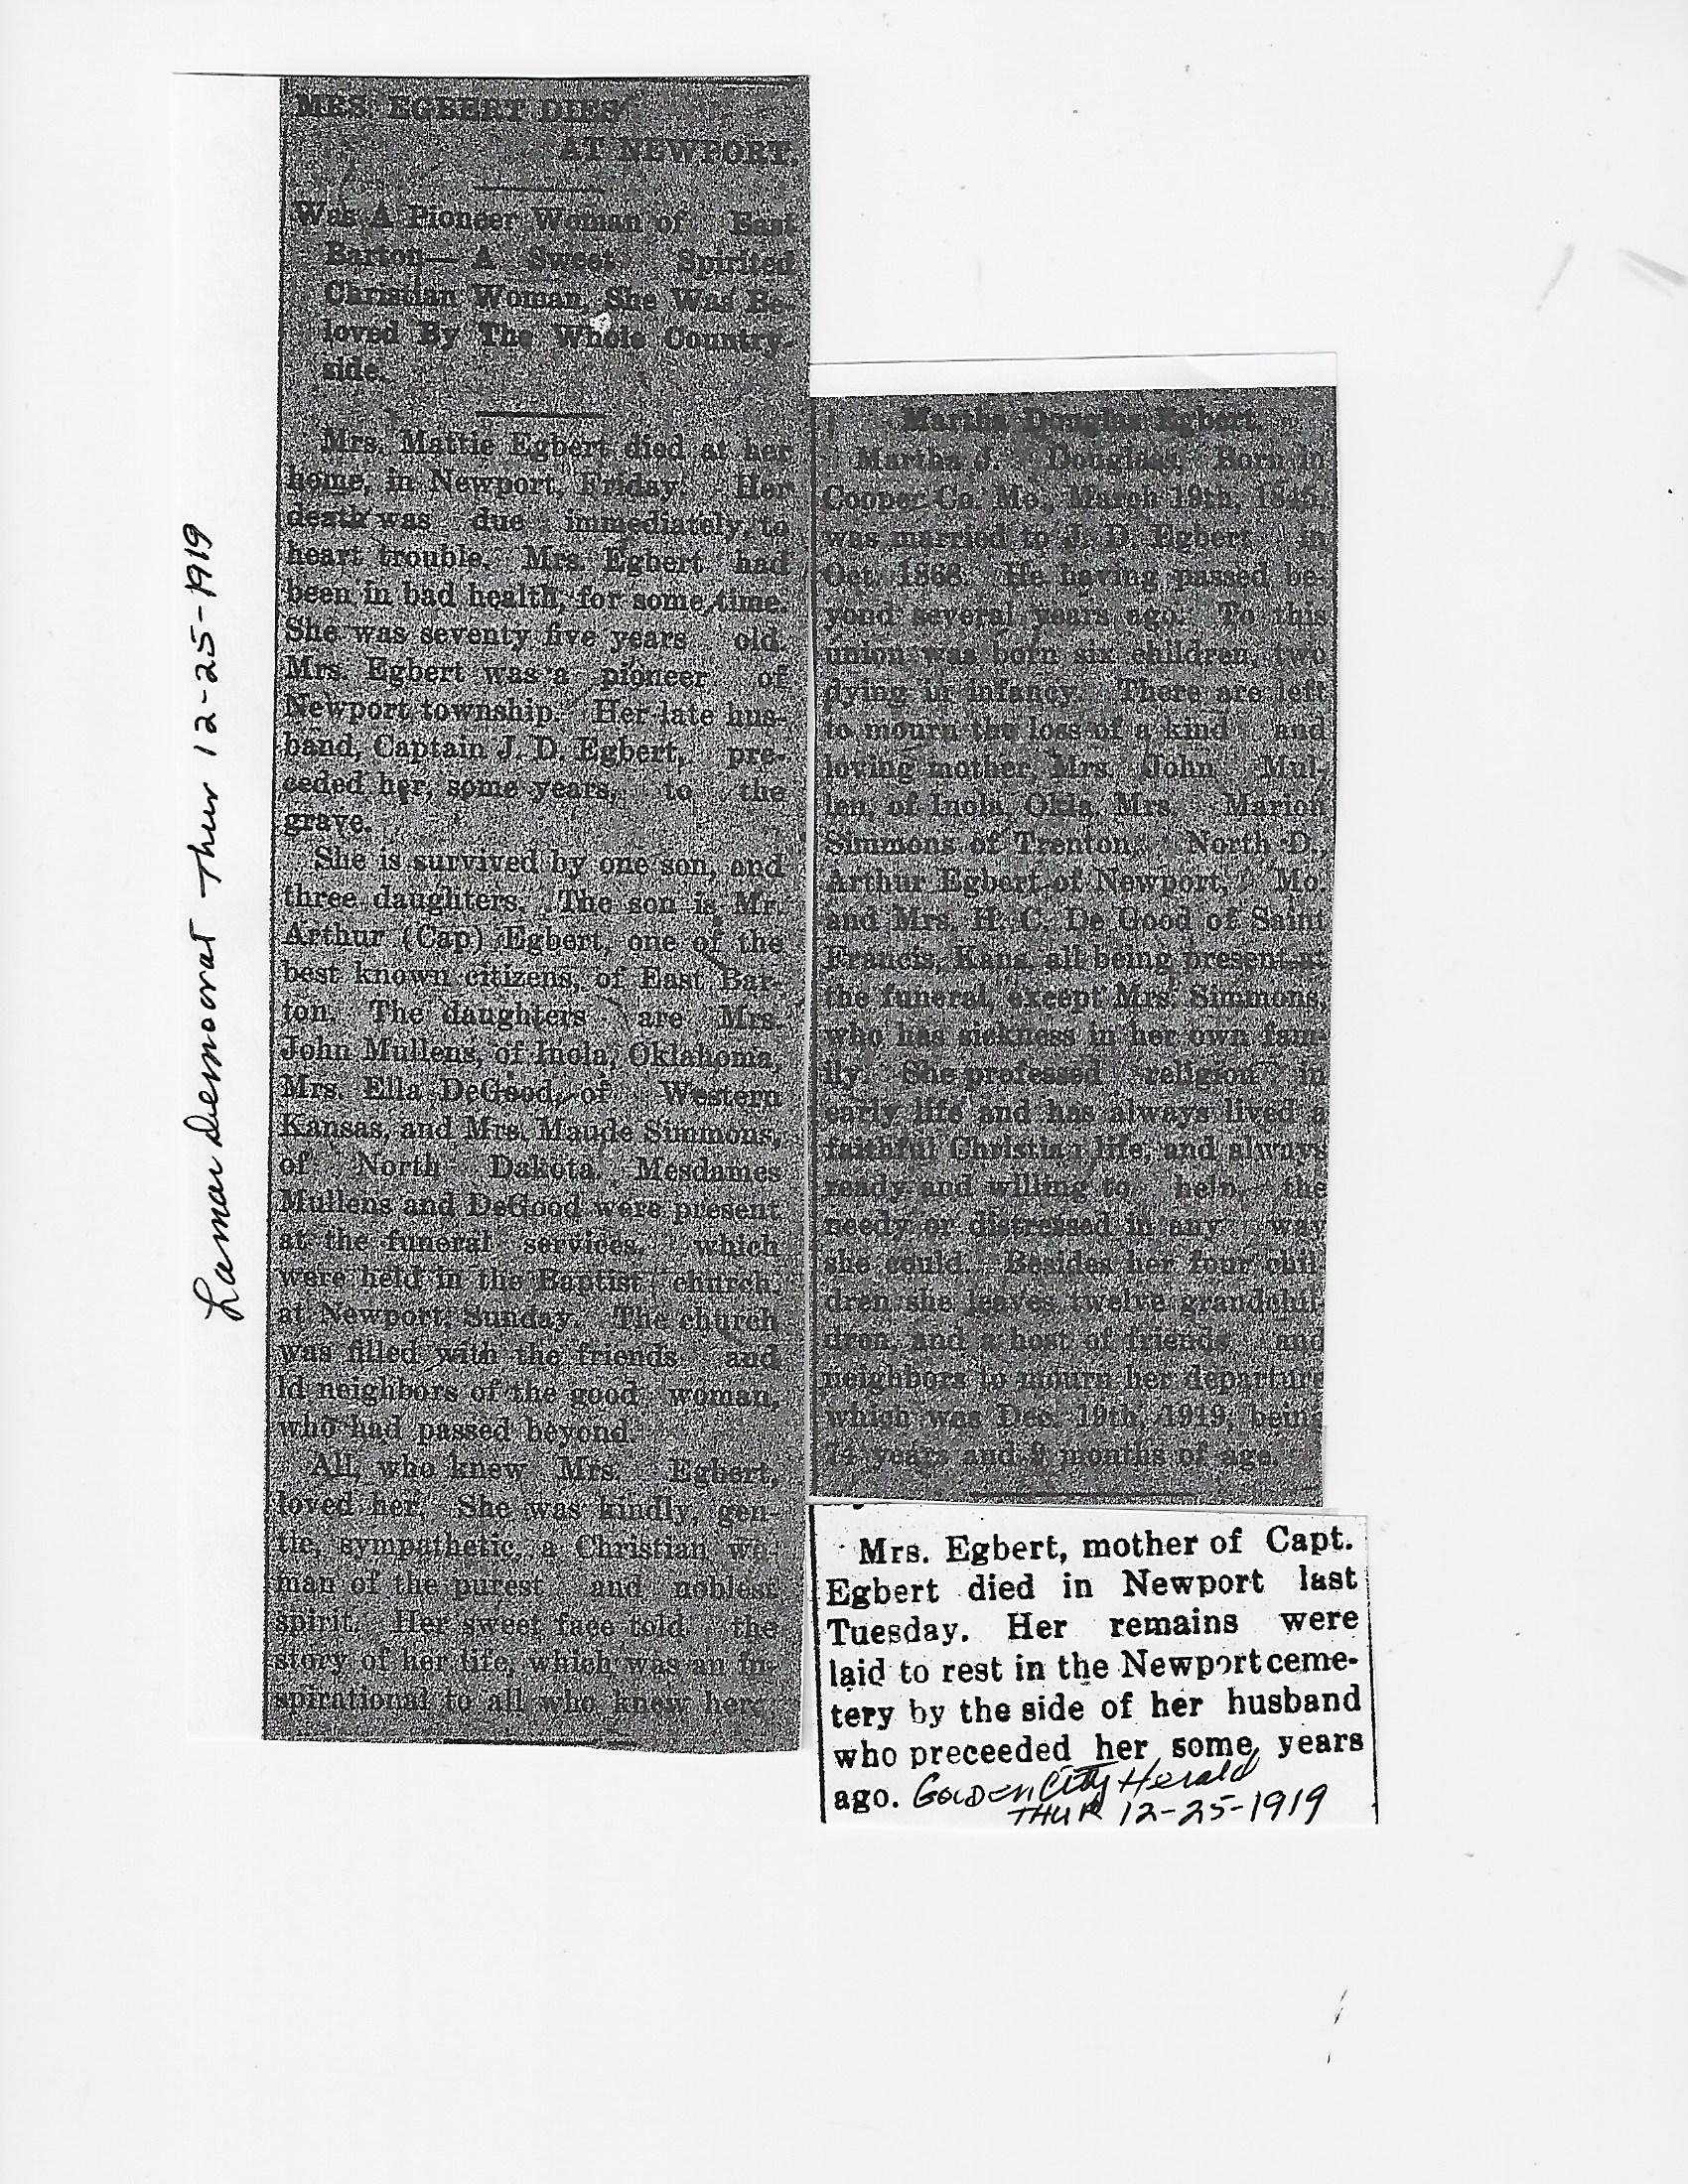 Lamar Democrat Thur 12-25-1919
MRS. EGBERT DIES
AT NEWPORT
Was A Pioneer Woman of East
Barton— A Sweet Spirited
Christian Woman, She Was Be-
loved By The Whole Country-
side.
Mrs. Mattie Egbert died at her
home, in Newport, Friday. Her
death was due immediately, to
heart trouble. Mrs. Egbert had
been in bad health, for some time.
She was seventy five years old.
Mrs. Egbert was a pioneer of
Newport township. Her late hus-
band, Captain J. D. Egbert, pre-
ceded her, some years, to the
grave.
She is survived by one son, and
three daughters. The son is Mr.
Arthur (Cap) Egbert, one of the
best known citizens, of East Bar-
ton. The daughters are Mrs.
John Mullens, of Inola, Oklahoma,
Mrs. Ella DeGood, of Western
Kansas, and Mrs. Maude Simmons,
of North Dakota. Mesdames
Mullens and DeGood were present
at the funeral services, which
were held in the Baptist church,
at Newport, Sunday. The church
was filled with the friends and
ld neighbors of the good woman,
who had passed beyond.
All, who knew Mrs. Egbert,
loved her. She was kindly, gen-
tle, sympathetic, a Christian wo-
man of the purest and noblest
spirit. Her sweet face told the
story of her life, which was an in-
spirational to all who knew her.
Martha Douglas Egbert.
Martha J. Douglass. Born in
Cooper Co. Mo., March 19th, 1845,
was married to J. D. Egbert in
Oct. 1868. He having passed be-
yond several years ago. To this
union was born six children, two
dying in infancy. There are left
to mourn the loss of a kind and
loving mother, Mrs. John Mul-
len, of Inola, Okla, Mrs. Marion
Simmons of Trenton, North D.,
Arthur Egbert of Newport, Mo.
and Mrs. H. C. De Good of Saint
Francis, Kans, all being present at
the funeral, except Mrs. Simmons,
who has sickness in her own fam-
ily. She professed religion in
early life and has always lived a
faithful Christian life, and always
ready and willing to help, the
needy or distressed in any way
she could. Besides her four chil-
dren she leaves twelve grandchil-
dren, and a host of friends and
neighbors to mourn her departure
which was Dec. 19th, 1919, being
74 years and 9 months of age.
Mrs. Egbert, mother of Capt.
Egbert died in Newport last
Tuesday. Her remains were
laid to rest in the Newport ceme-
tery by the side of her husband
who preceeded her some years
ago. Golden City Herald
THUR 12-25-1919